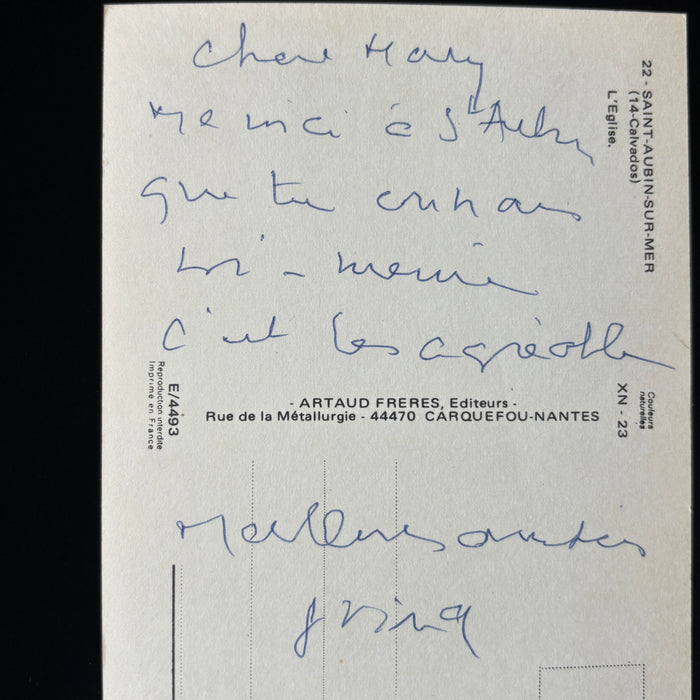 Chere Mary
Me voici à St Aubin
que tu connais
toi-meme
c'est très agréable
22 - SAINT-AUBIN-SUR-MER
(14-Calvados)
L'Eglise.
E/4493
Reproduction interdite
Imprimé en France
- ARTAUD FRERES, Editeurs -
Rue de la Métallurgie - 44470 CARQUEFOU-NANTES
XN - 23
Couleurs
naturelles
Meilleures amitiés